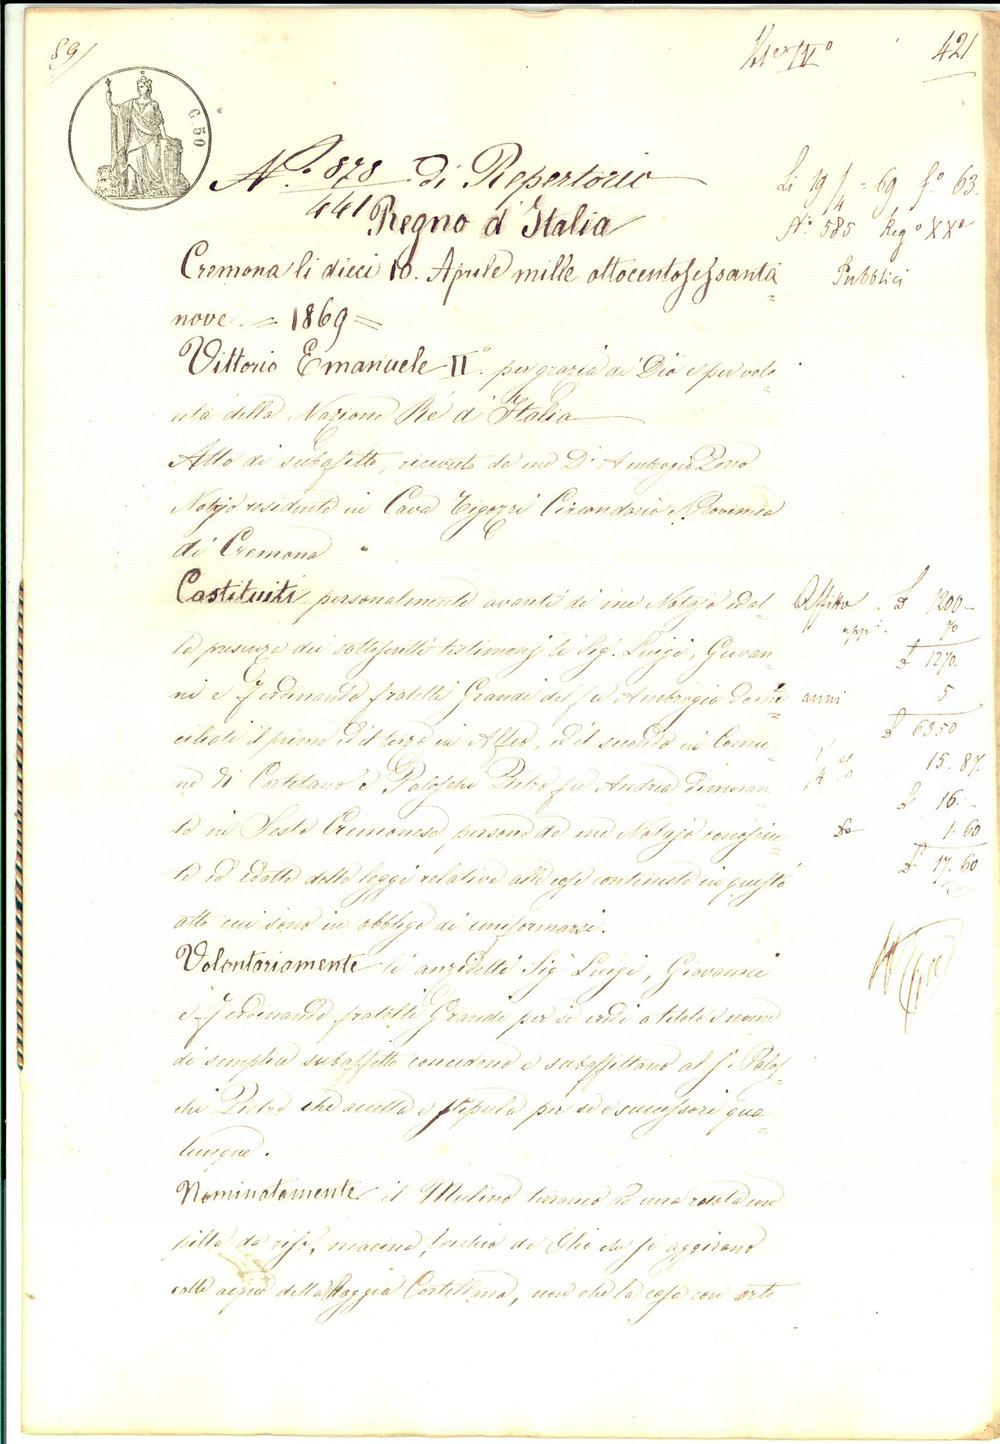 89
421
C. 50
N.° 878 di Repertorio
441
Li 19/4 = 69 f.° 63.
N.° 585 Reg° XX°
Pubblici
Regno d'Italia
Cremona li dieci 10. Aprile mille ottocentosessanta
nove. = 1869 =
Vittorio Emanuele II.° per grazia di Dio e per volo
ntà della Nazione Rè d'Italia
Atto di subaffitto, ricevuto da me D.r Ambrogio
Notajo residente in Cava Tigozzi Circondario e Provincia
di Cremona
Costituiti personalmente avanti di me Notajo ed al-
la presenza dei sottoscritti testimonj li Sig.i Luigi, Giovan-
ni e Ferdinando fratelli Grandi del fu Ambrogio domi-
ciliati il primo ed il terzo in Alfeo, ed il secondo in Comu-
ne di e Paloschi Pietro fu Andrea dimoran-
te in Sesto Cremonese, persone da me Notajo conosciu-
te ed edotte delle leggi relative alle cose contenute in questo
atto cui sono in obbligo di uniformarsi.
Volontariamente li anzidetti Sig.i Luigi, Giovanni
e Ferdinando fratelli Grandi per sè eredi a titolo e nome
di semplice subaffitto concedono e subaffittano al S.r Palos-
chi Pietro che accetta e stipula per sè e successori qua-
lunque.
Nominatamente il Mulino terraneo ad una rodata con
pilla da riso, macina, torchio da Olio che si aggirano
colle acque della Roggia Cortellana, non che la casa con orto
Affitto £ 1200-
app.i 70
£ 1270.
anni 5
£ 6350
15. 87.
£ 16.-
1. 60
£ 17. 60